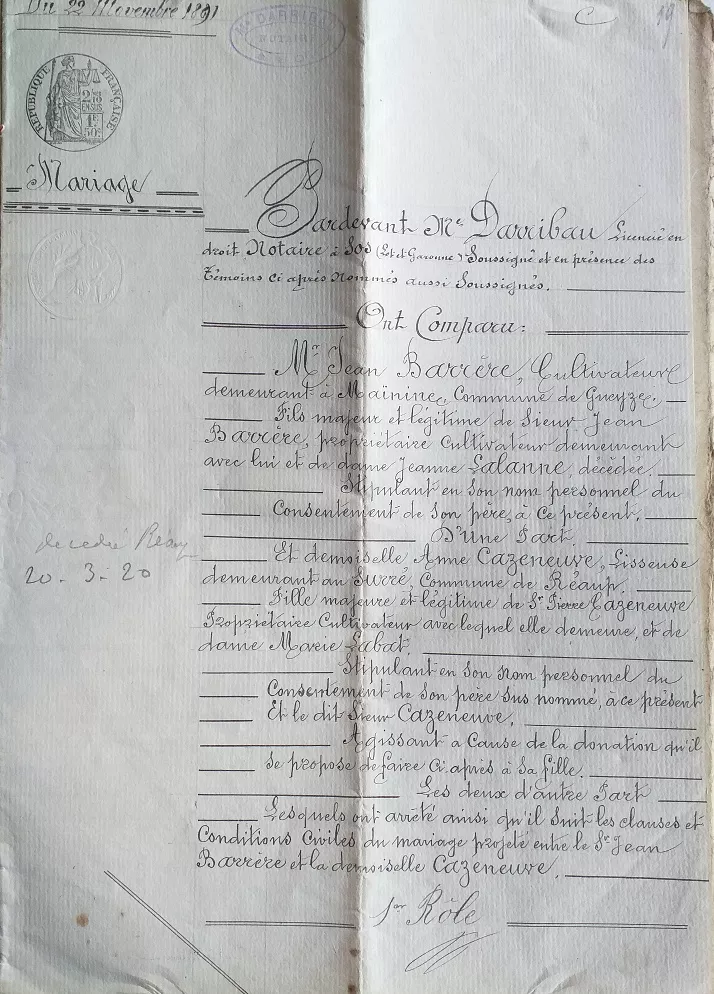 Du 22 Novembre 1891
Me DARRIBAU
NOTAIRE
C
19
RÉPUBLIQUE FRANÇAISE
2/10
EN SUS
1F
50C
Mariage
Pardevant Me Darribau Licencié en
droit Notaire à Sos (Lot et Garonne) Soussigné et en présence des
Témoins ci après Nommés aussi Soussignés.
Ont Comparu:
Mr Jean Barrère, Cultivateur
demeurant à Maïnine, Commune de Gueyze.
Fils majeur et légitime de Sieur Jean
Barrère, propriétaire Cultivateur demeurant
avec lui et de dame Jeanne Lalanne, décédée.
Stipulant en Son nom personnel du
Consentement de Son père, à Ce présent,
D'Une Part.
Et demoiselle Anne Cazeneuve, Lisseuse
demeurant au Surré, Commune de Réaup.
Fille majeure et légitime de Sr Pierre Cazeneuve
Propriétaire Cultivateur avec lequel elle demeure, et de
dame Marie Labat.
Stipulant en Son Nom personnel du
Consentement de Son père Sus nommé, à ce présent
Et le dit Sieur Cazeneuve,
Agissant a Cause de la donation qu'il
se propose de faire Ci après à Sa fille.
Les deux d'autre Part
Lesquels ont arrêté ainsi qu'il Suit les clauses et
Conditions Civiles du mariage projeté entre le Sr Jean
Barrère et la demoiselle Cazeneuve.
decedé
20-3-20
1er Rôle